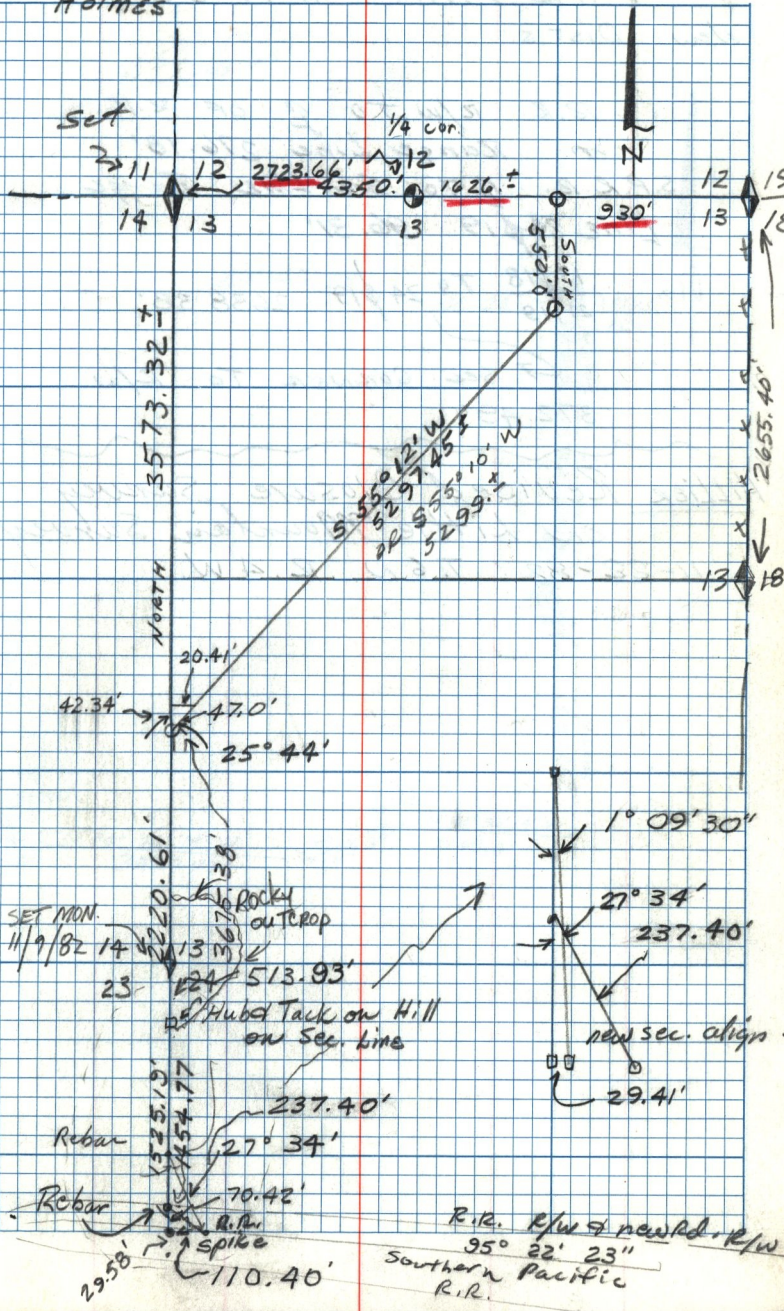 Holmes
Set
1/4 cor.
11 12 2723.66' 12
4350.' 1626.± 12
14 13 13 930' 13
N
SOUTH
550.0'
3573.32 ±
NORTH
S 55° 12' W
5297.45 ±
or S 55° 10' W
5299.±
2655.40'
13 18
20.41'
42.34' 47.0'
25° 44'
2220.61'
3675.38'
Rocky
outcrop
SET MON.
11/9/82 14 13
23 24 513.93'
Hub & Tack on Hill
on Sec. Line
1° 09' 30"
27° 34'
237.40'
new sec. align.
29.41'
1525.19'
1454.77
237.40'
Rebar 27° 34'
Rebar 70.42'
R.R.
Spike
29.58'
110.40'
R.R. R/W & new Rd. R/W
95° 22' 23"
Southern Pacific
R.R.